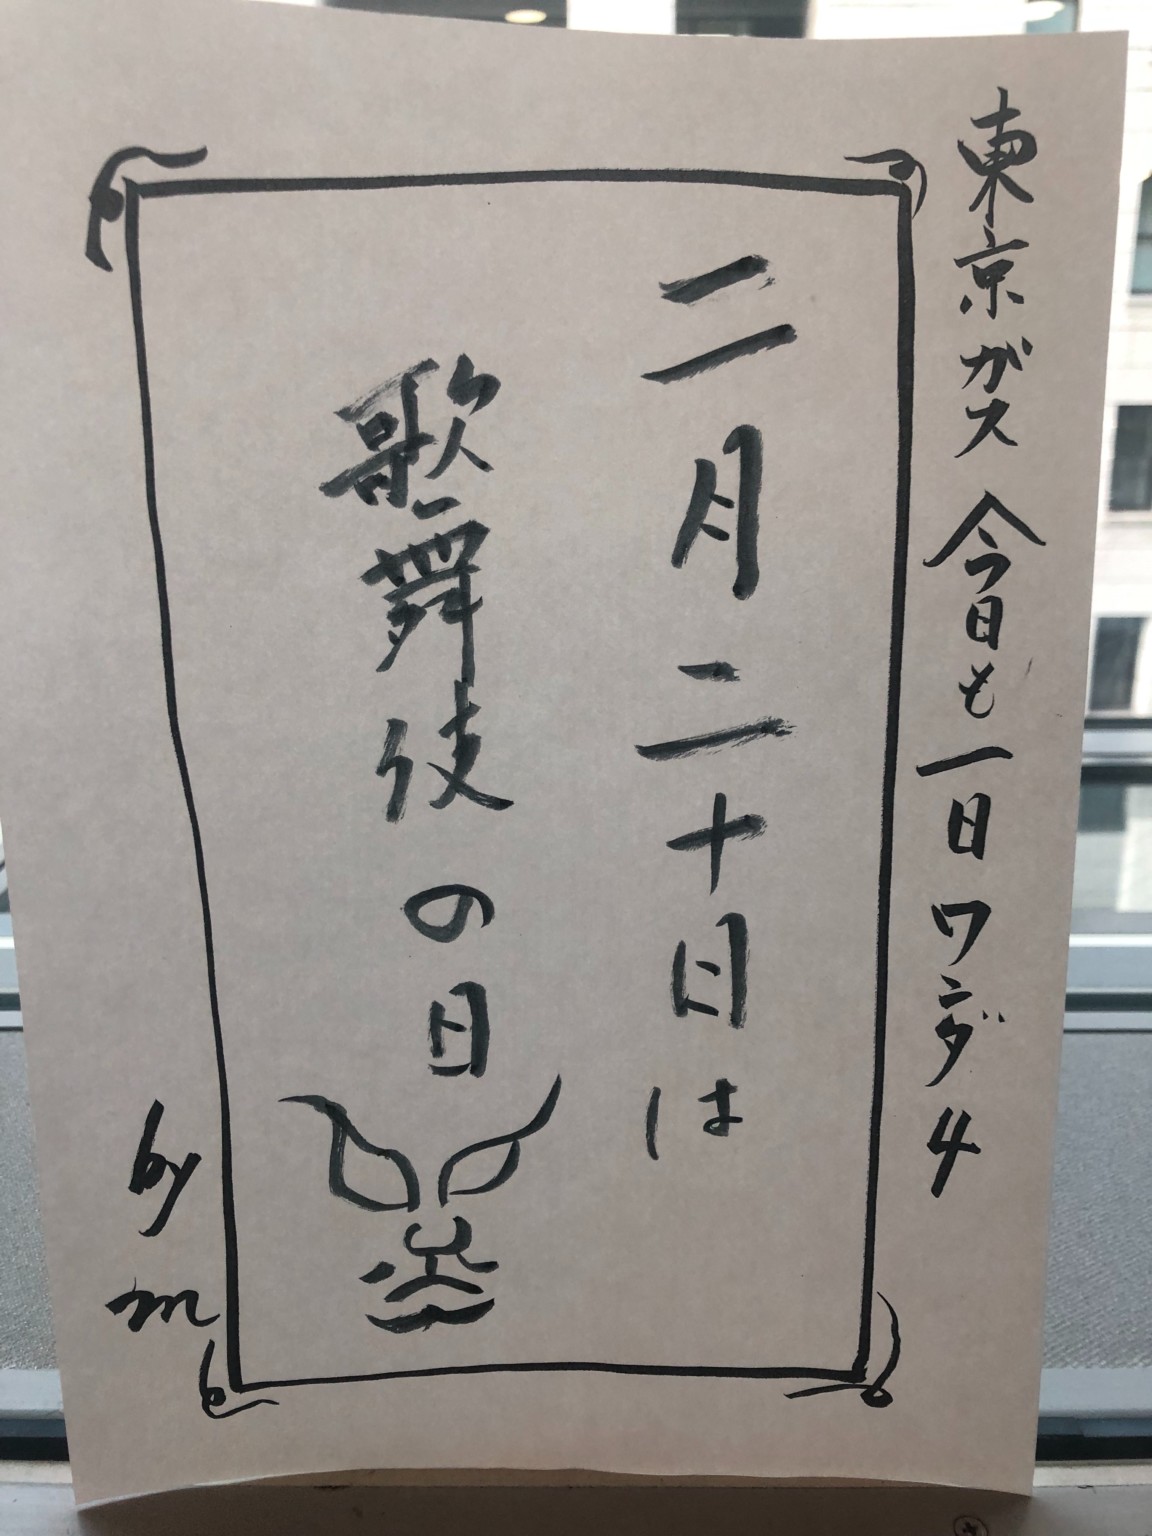 東京ガス 今日も一日ワンダ4
二月二十日は
歌舞伎の日
by m